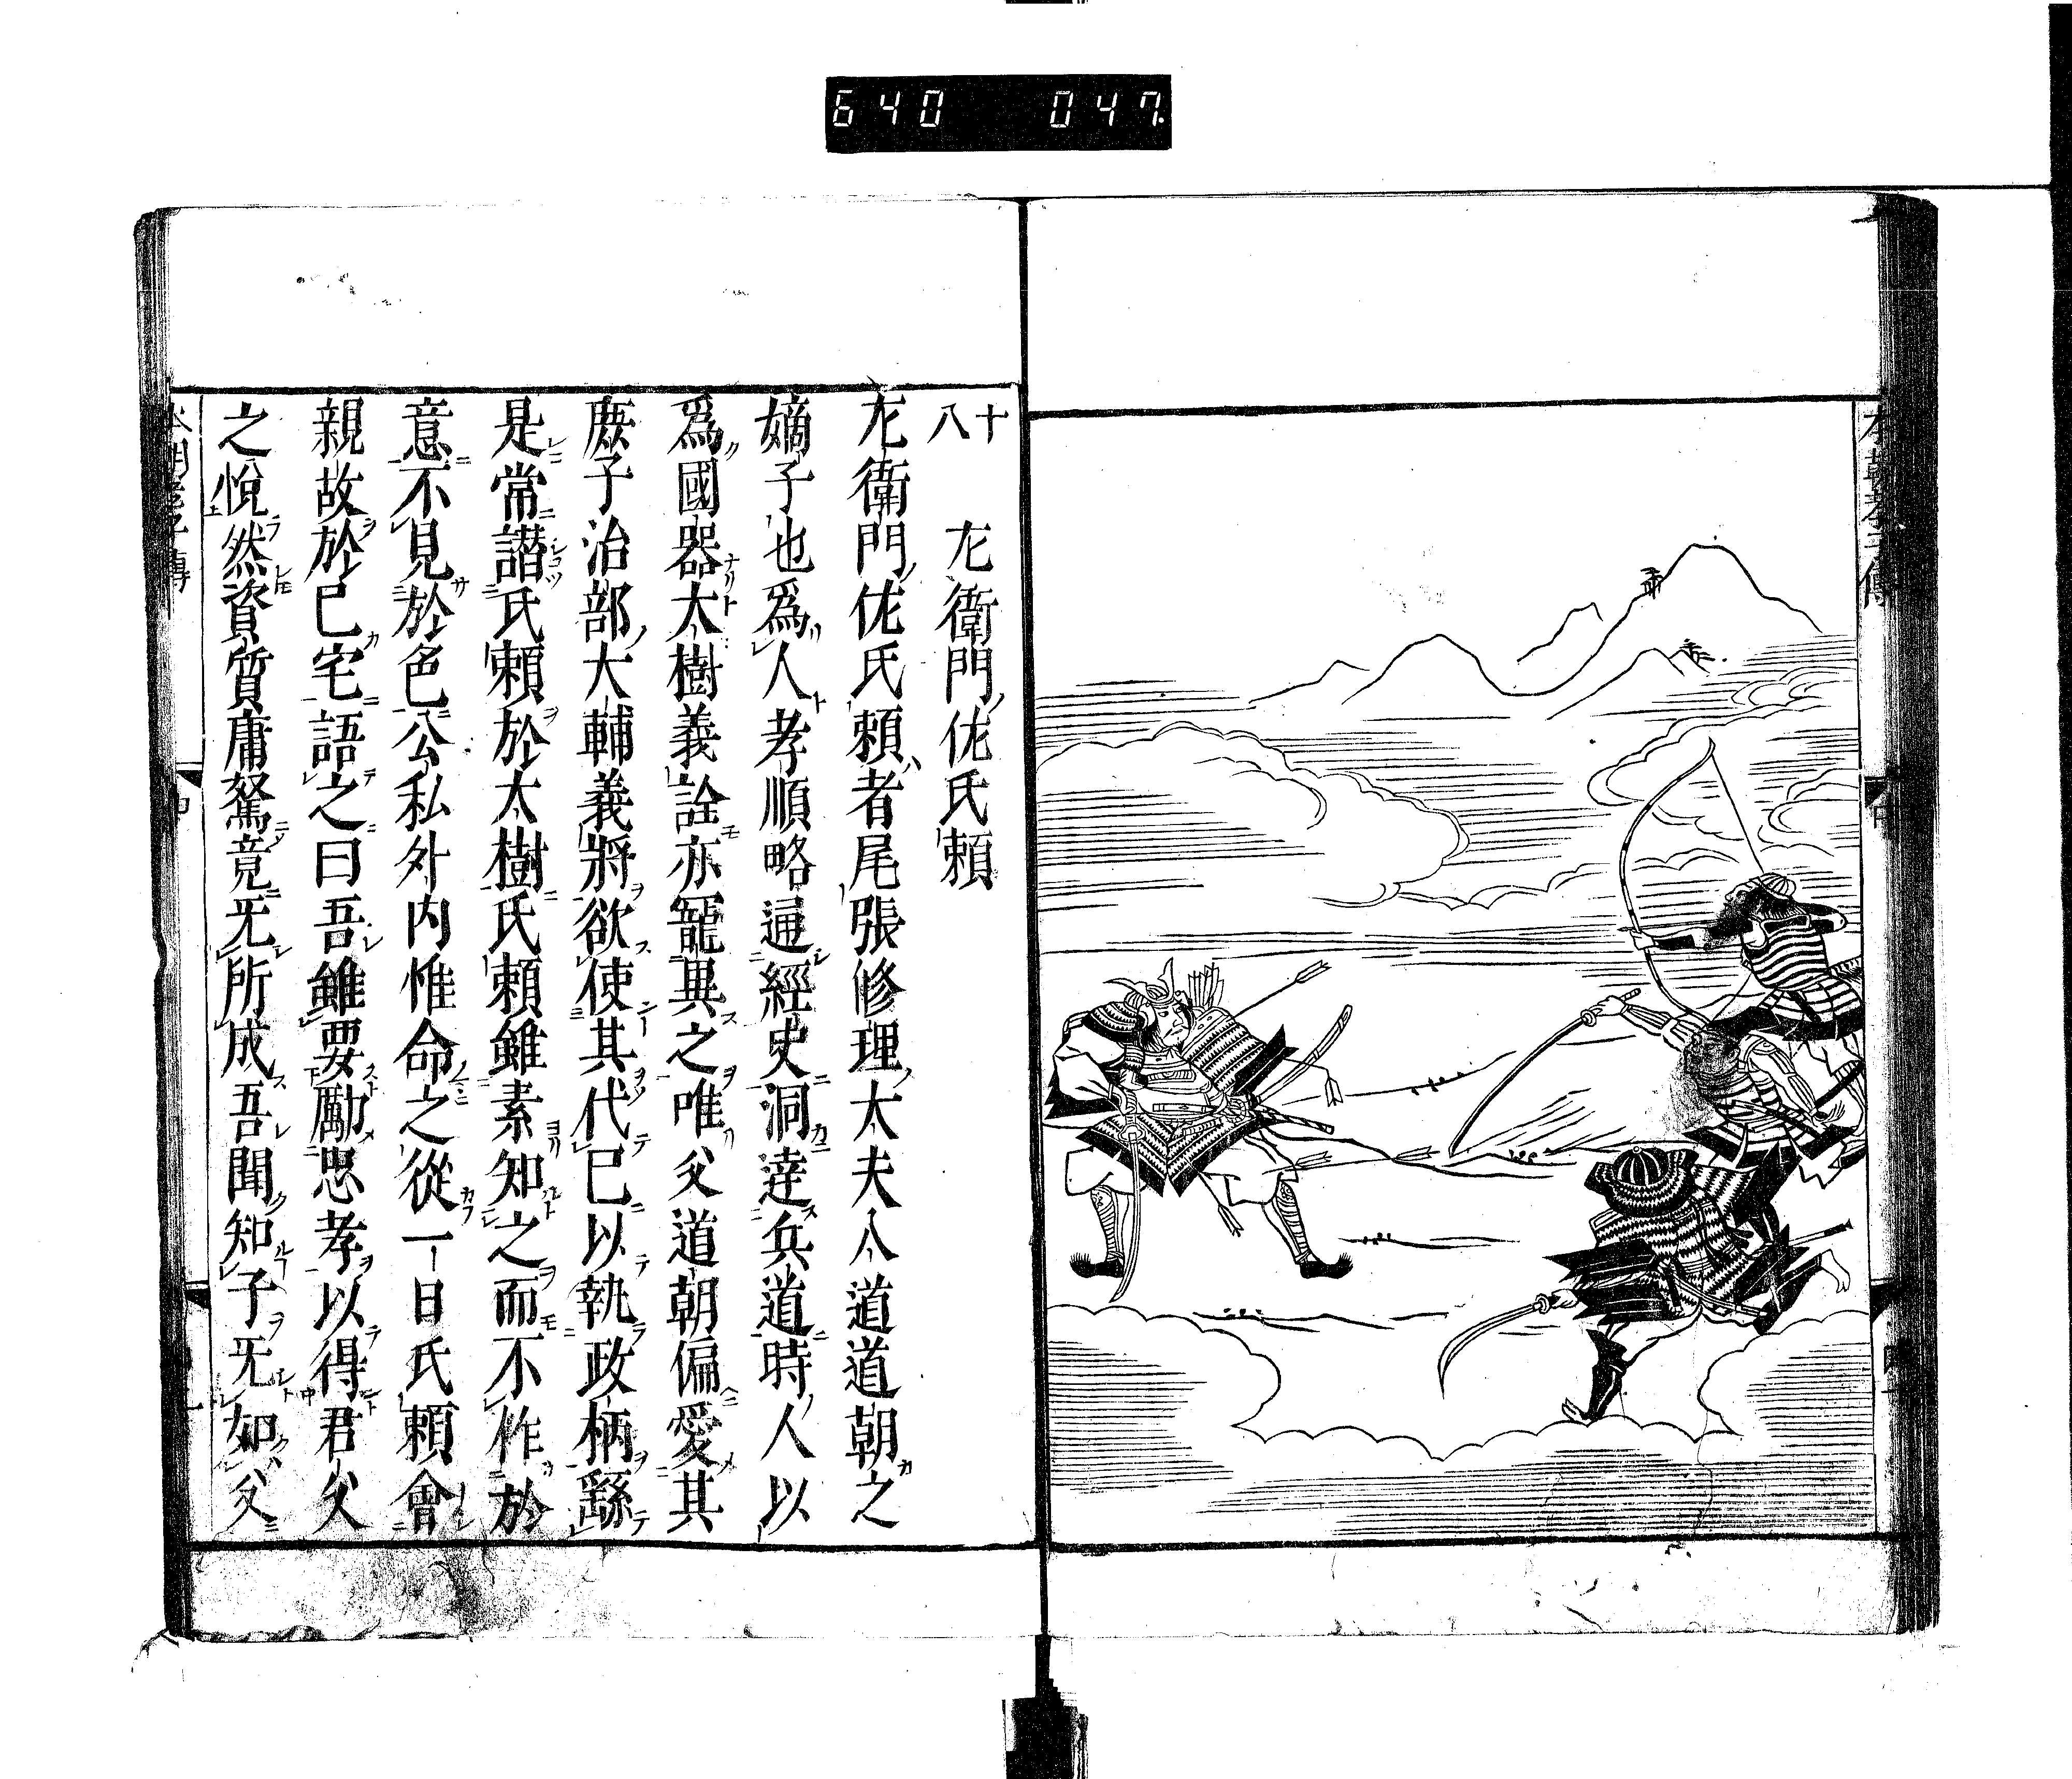 640 047.
本朝孝子傳
中
十八 左衛門佐氏頼
左衛門佐氏頼者尾張修理大夫入道道朝之
嫡子也爲人孝順略通經史洞達兵道時人以
爲國器大樹義詮亦寵異之唯父道朝偏愛其
庶子治部大輔義將欲使其代己以執政柄繇
是常譖氏頼於大樹氏頼雖素知之而不怍於
意不見於色公私外内惟命之從一日氏頼會
親故於己宅語之曰吾雖要勵忠孝以得君父
之悅然資質庸駑竟无所成吾聞知子无如父
本朝孝子傳
中